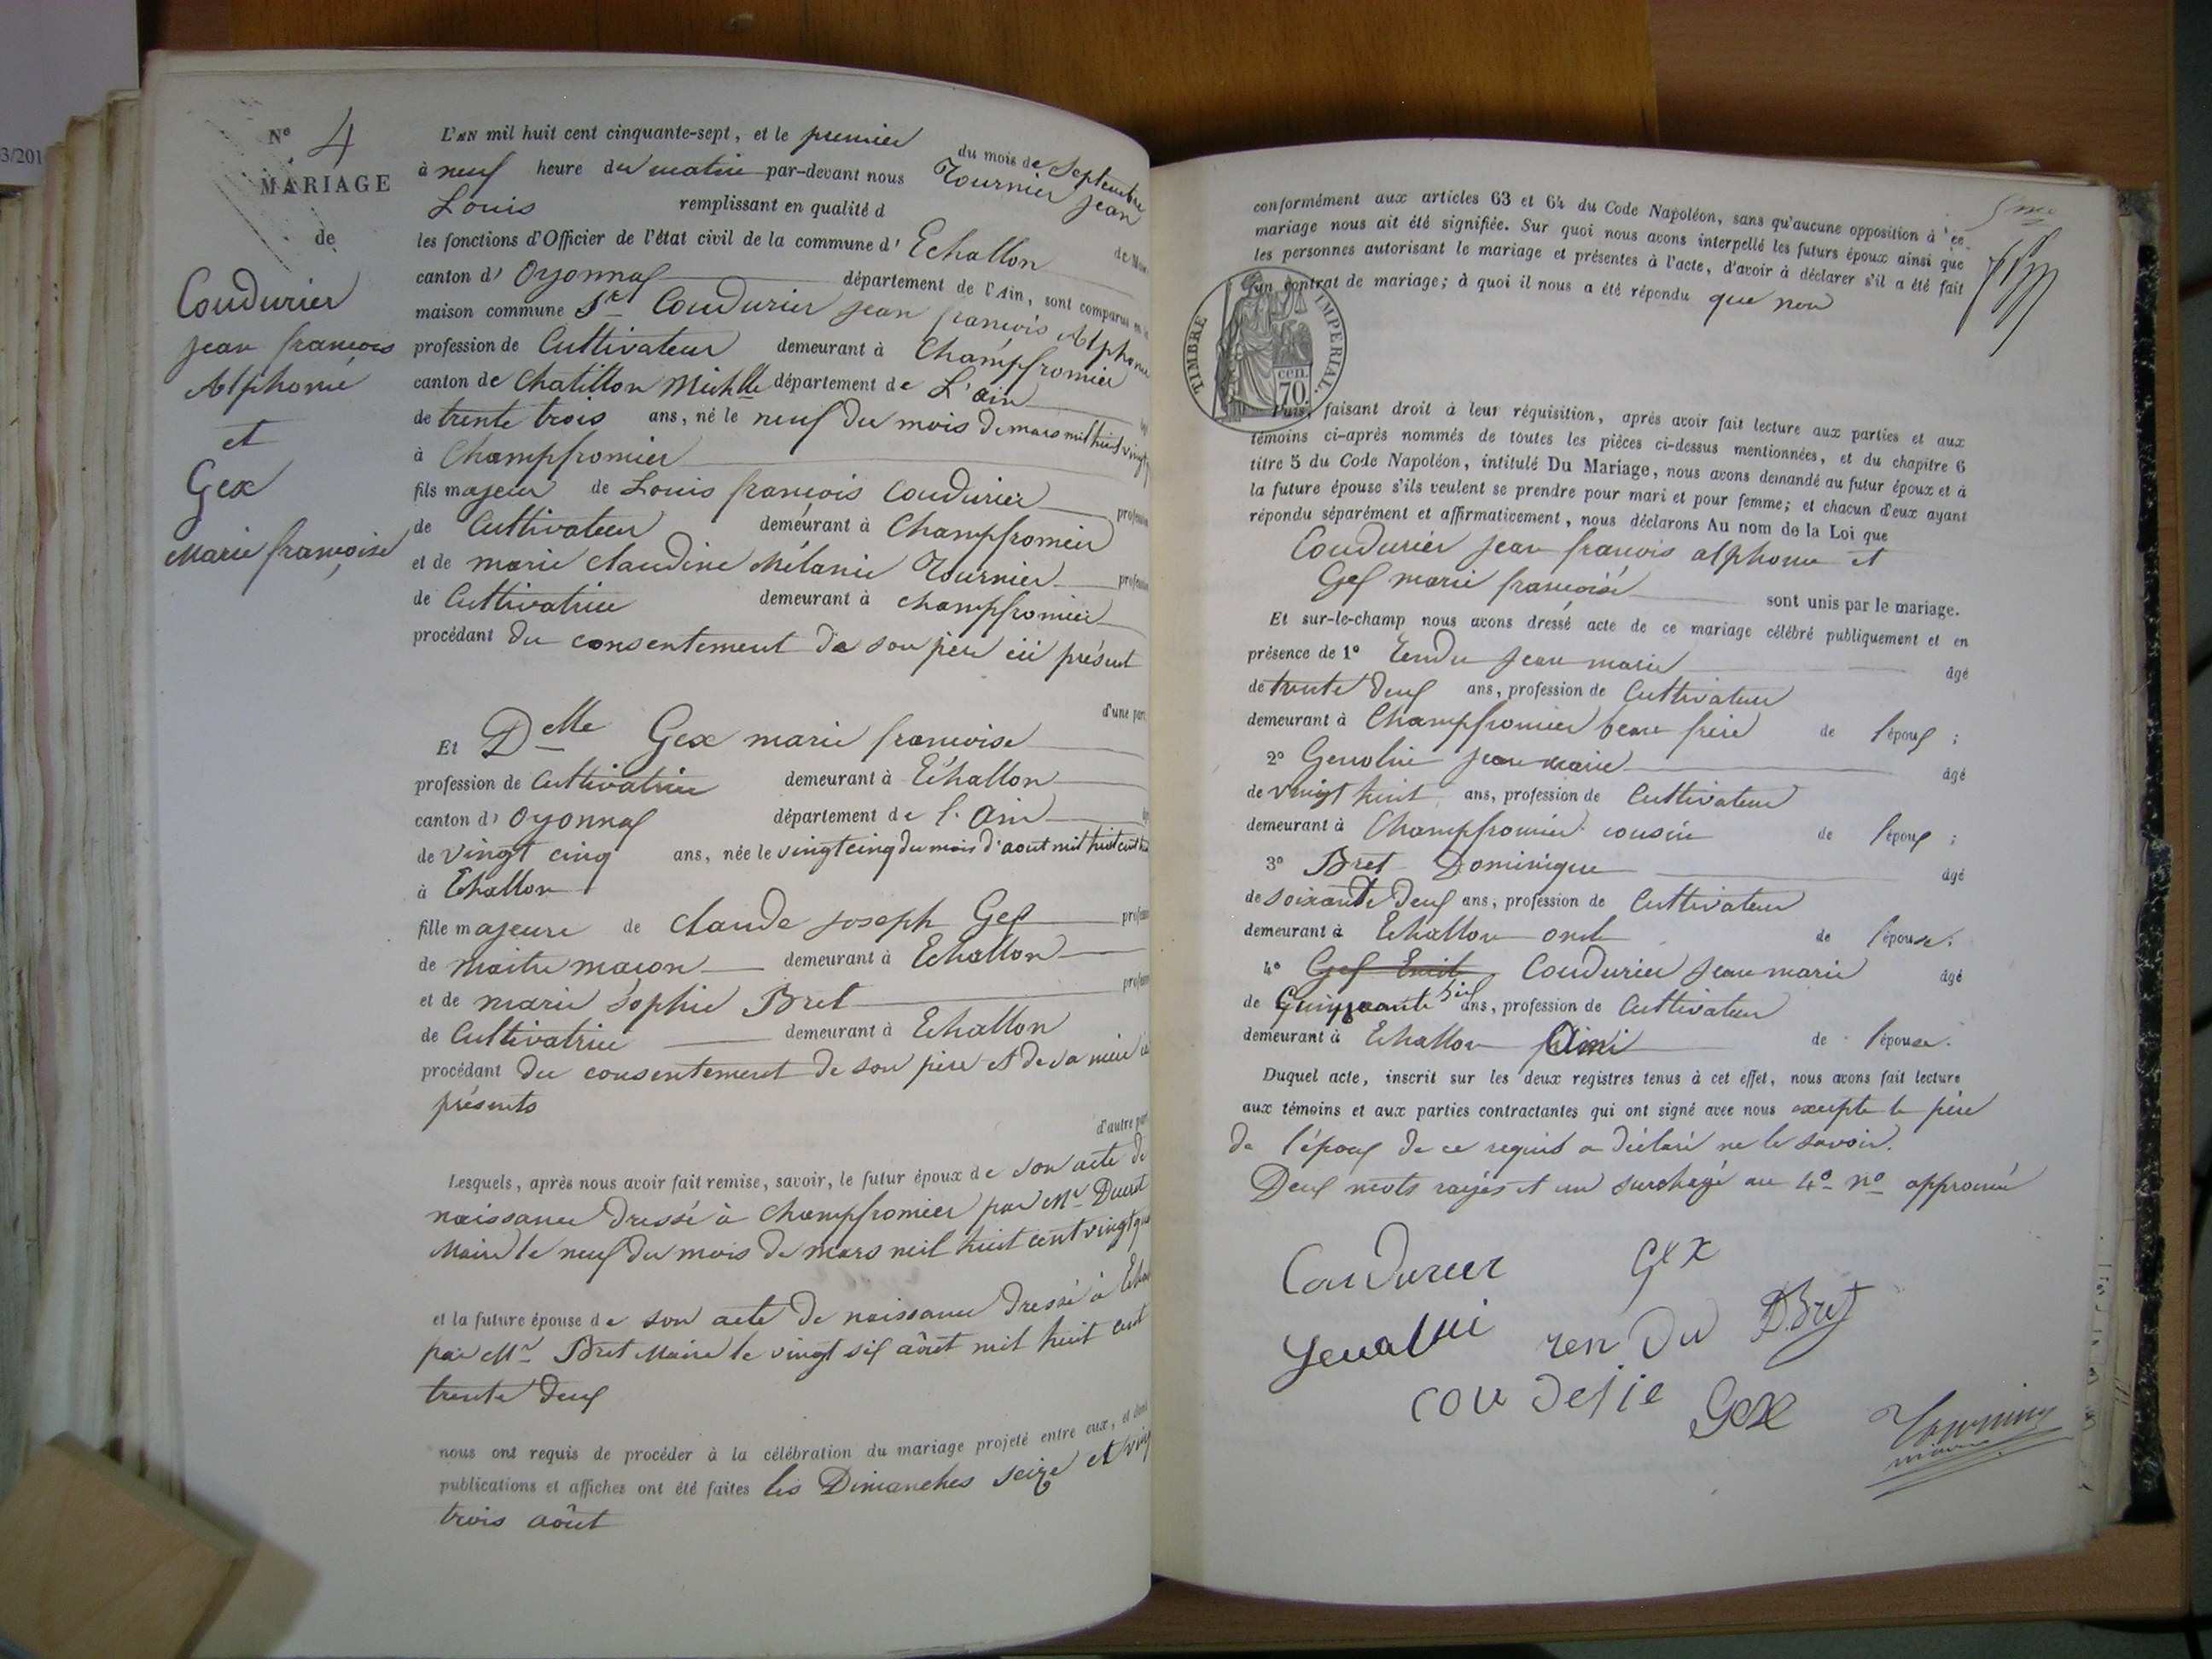 3/201
N° 4
MARIAGE
de
Coudurier
jean francois
Alphonse
et
Gex
Marie françoise
L'AN mil huit cent cinquante-sept, et le premier du mois de Septembre
à neuf heure du matin par-devant nous Tournier Jean
Louis remplissant en qualité d
les fonctions d'Officier de l'état civil de la commune d' Echallon
canton d' Oyonnax département de l'Ain, sont comparus en
maison commune Sr Coudurier jean françois Alphonse
profession de Cultivateur demeurant à Champfromier
canton de Chatillon Michlle département de L'ain
de trente trois ans, né le neuf du mois de mars mil huit vingt
à Champfromier
fils majeur de Louis françois Coudurier
de Cultivateur demeurant à Champfromier
et de marie claudine Mélanie Tournier
de Cultivatrice demeurant à champfromier
procédant du consentement de son père ici présent
d'une part
Et Delle Gex marie francoise
profession de Cultivatrice demeurant à Echallon
canton d' Oyonnax département de l'Ain
de vingt cinq ans, née le vingt cinq du mois d'aout mil huit cent
à Echallon
fille majeure de claude joseph Gex
de maitre macon demeurant à Echallon
et de marie sophie Bret
de Cultivatrice demeurant à Echallon
procédant du consentement de son père et de sa mère
présents
d'autre part
Lesquels, après nous avoir fait remise, savoir, le futur époux de son acte de
naissance dressé à champfromier par Mr Ducret
Maire le neuf du mois de mars mil huit cent vingt
et la future épouse de son acte de naissance dressé à
par Mr Bret Maire le vingt six aôut mil huit cent
trente deux
nous ont requis de procéder à la célébration du mariage projeté entre eux, et dont
publications et affiches ont été faites les Dimanches seize et vingt
trois aôut
conformément aux articles 63 et 64 du Code Napoléon, sans qu'aucune opposition à ce
mariage nous ait été signifiée. Sur quoi nous avons interpellé les futurs époux ainsi que
les personnes autorisant le mariage et présentes à l'acte, d'avoir à déclarer s'il a été fait
un contrat de mariage; à quoi il nous a été répondu que non
TIMBRE IMPERIAL
cen.
70.
Puis, faisant droit à leur réquisition, après avoir fait lecture aux parties et aux
témoins ci-après nommés de toutes les pièces ci-dessus mentionnées, et du chapitre 6
titre 5 du Code Napoléon, intitulé Du Mariage, nous avons demandé au futur époux et à
la future épouse s'ils veulent se prendre pour mari et pour femme; et chacun d'eux ayant
répondu séparément et affirmativement, nous déclarons Au nom de la Loi que
Coudurier jean francois alphonse et
Gex marie francoise sont unis par le mariage.
Et sur-le-champ nous avons dressé acte de ce mariage célébré publiquement et en
présence de 1° Rendu Jean marie âgé
de trente deux ans, profession de Cultivateur
demeurant à Champfromier beau frère de l'époux ;
2° Genolin jean marie âgé
de vingt huit ans, profession de Cultivateur
demeurant à Champfromier cousin de l'époux ;
3° Bret Dominique âgé
de soixante deux ans, profession de Cultivateur
demeurant à Echallon oncle de l'épouse.
4° Gex Emile Coudurier Jean marie âgé
de Cinquante six ans, profession de Cultivateur
demeurant à Echallon Ami de l'épouse.
Duquel acte, inscrit sur les deux registres tenus à cet effet, nous avons fait lecture
aux témoins et aux parties contractantes qui ont signé avec nous excepté le père
de l'époux de ce requis a déclaré ne le savoir.
Deux mots rayés et un surchagé au 4° n° approuvé
Coudurier Gex
Genolin ren Du D. Bret
Gex
maire